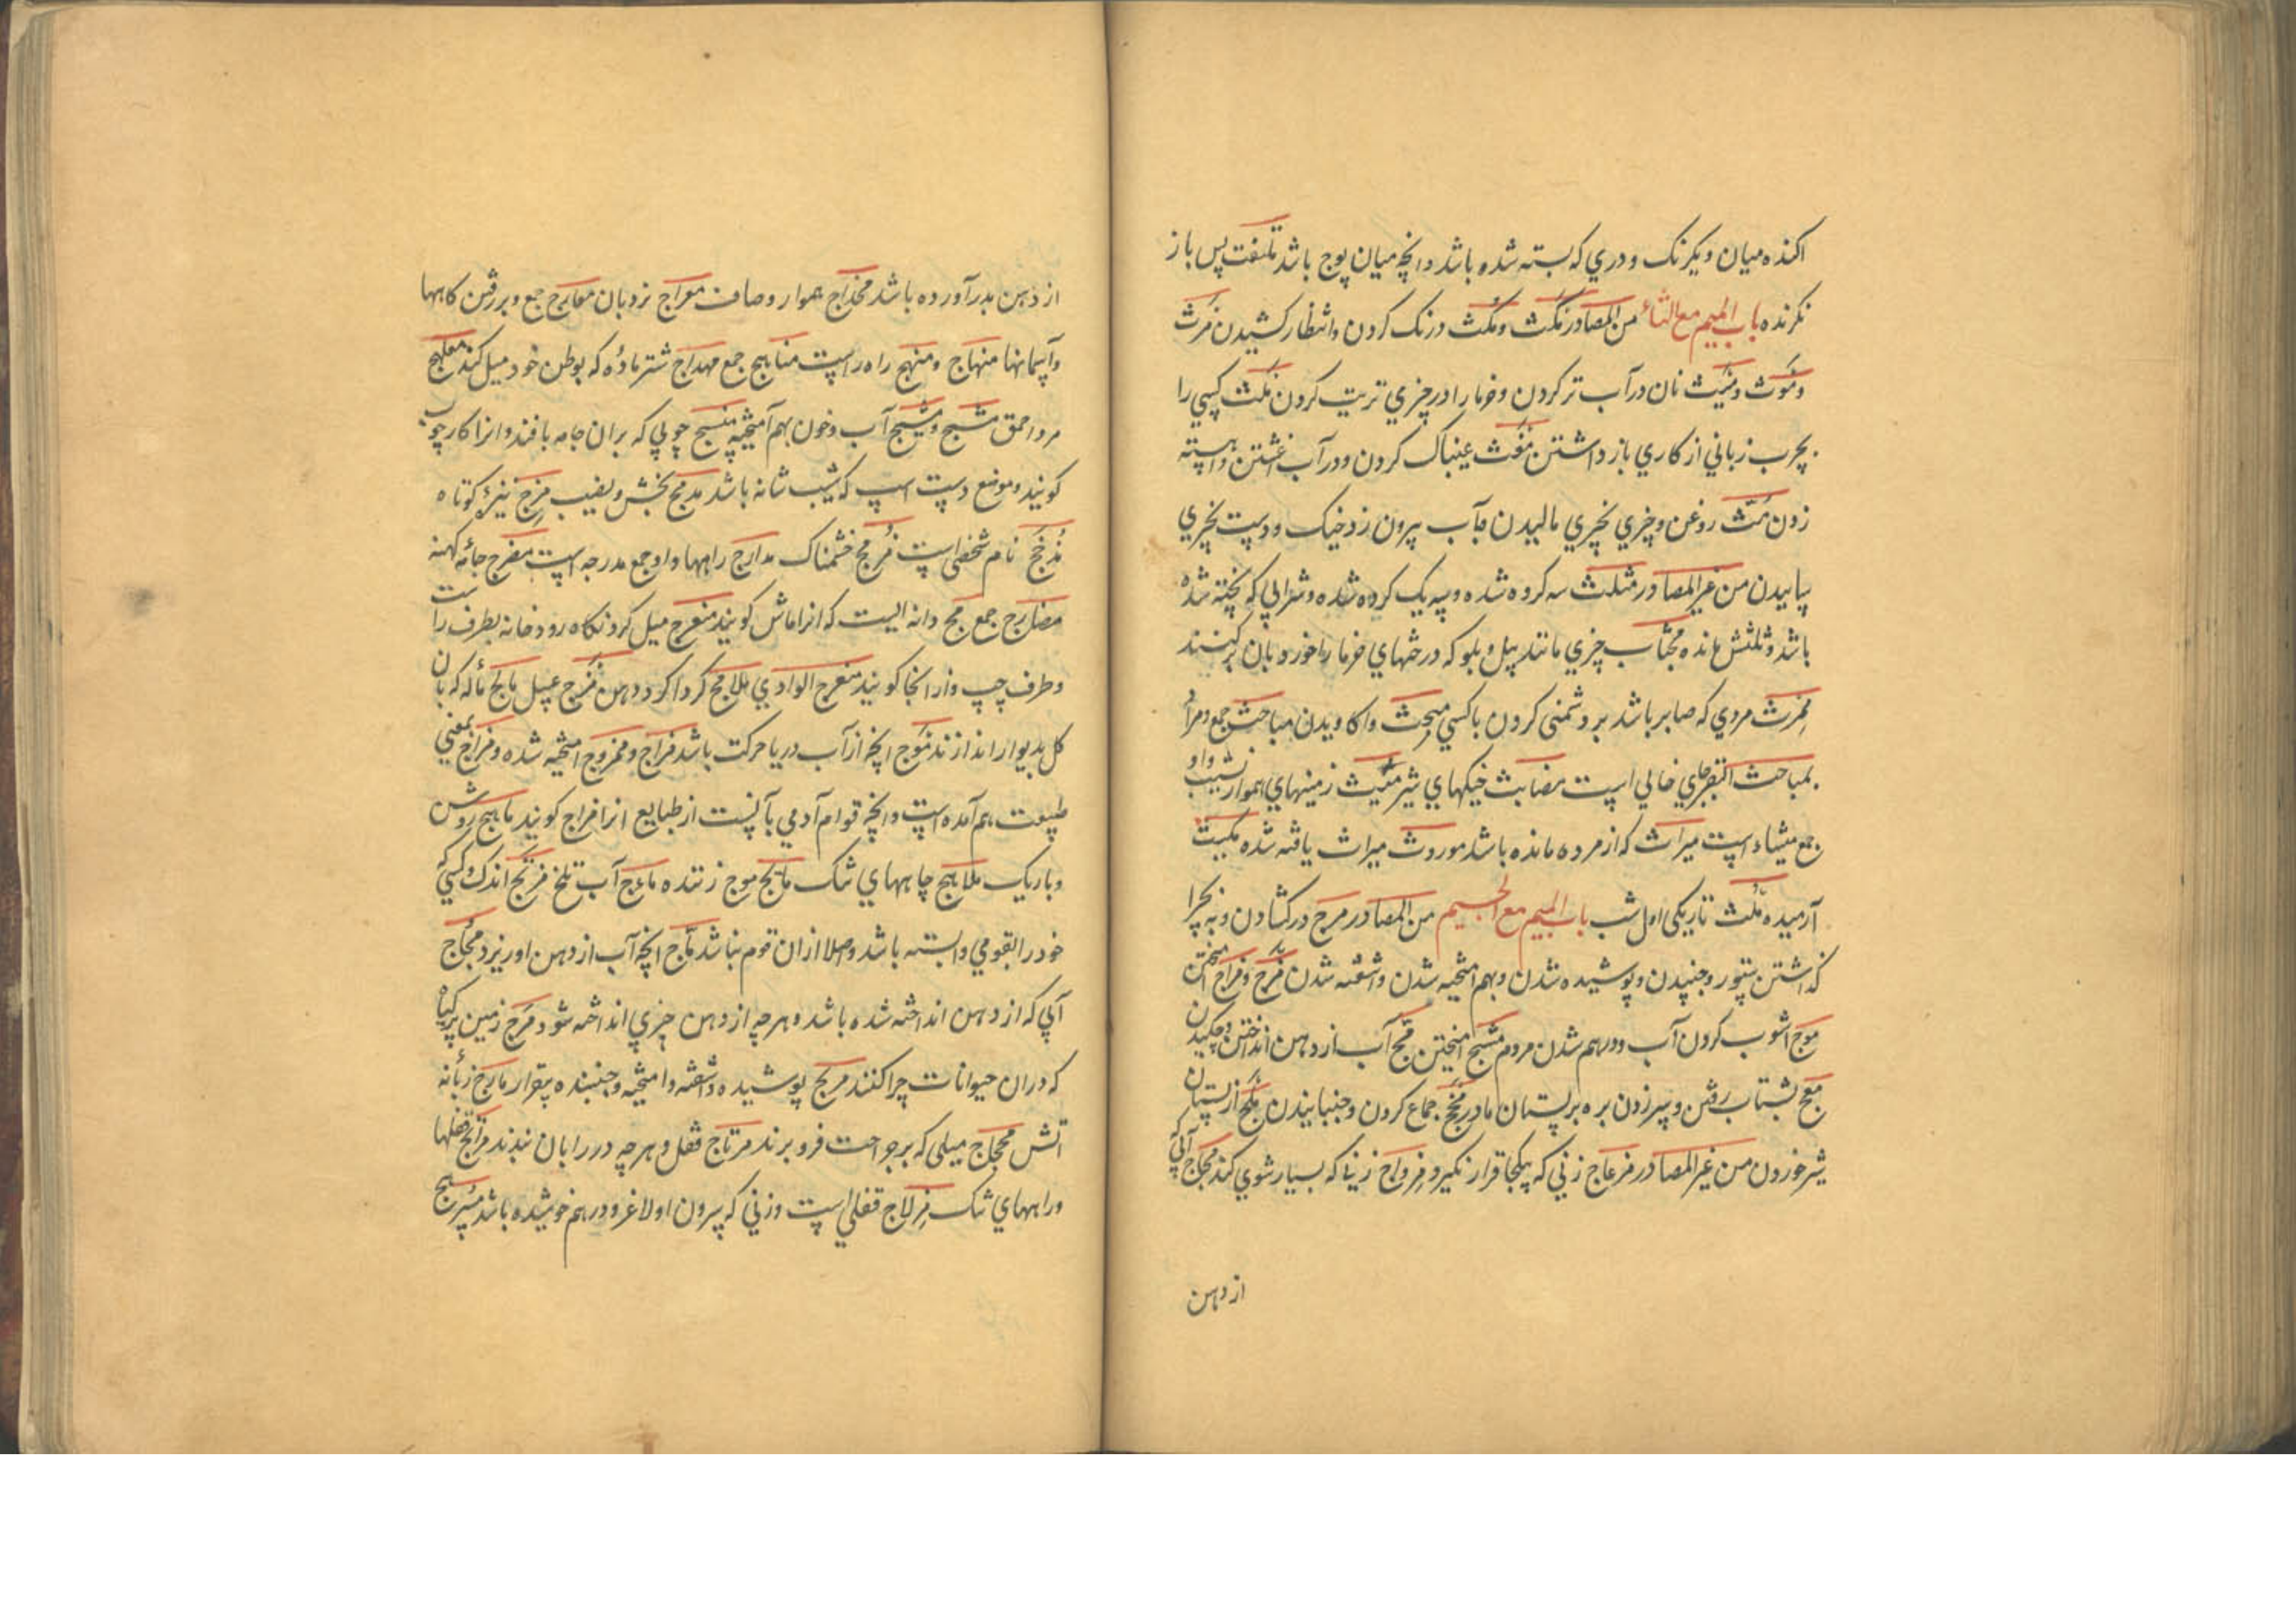 اکنده میان و یکرنک و دري که بسته شده باشد و انچه میان پوچ باشد ملتفت پس باز
نکرنده باب المیم مع الثاء من المصادر مَکث و مُکث درنک کردن و انتظار کشیدن مَرث
و مَوث و مَیث نان در آب تر کردن و خرما را در چیزي تربیت کردن مَلث کسي را
بچرب زباني از کاري باز داشتن مَغث کردن و در آب اغشتن و اهسته
زدن مَثّ روغن و چیزي بچیزي مالیدن و آب بیرون زد خیک و دست بچیزي
من غیر المصادر مثلث سه کرده شده و سه یک کرده شده و شرابي که پخته شده
باشد و ثلثش مانده چیزي مانند بیل و بلو که درختهاي خرما را خورد بان برکنند
مِمرث مردي که صابر باشد بر دشمنی کردن با کسي مبحث واکاویدن مباحث جمع و مراد
بمباحث البقر جاي خالي است خیکهاي شیر میث زمینهاي هموار نشیب و او
جمع میثاء است میراث که از مرده مانده باشد موروث میراث یافته شده مکیث
آرمیده مَلث تاریکی اول شب باب المیم مع الجیم من المصادر مرج در کشادن و بچرا
گذاشتن ستور و جنبیدن و پوشیده شدن و بهم امیخته شدن و اشفته شدن مَزج و مزاج امیختن
موج اشوب کردن آب و درهم شدن مردم مَشج امیختن مَجّ آب از دهن انداختن و چکیدن
مَعج بشتاب رفتن و سر زدن بره بر پستان مادر مَخج جماع کردن و جنبانیدن مَلج از پستان
شیر خوردن من غیر المصادر مزعاج زني که بیکجا قرار نکیرد مِزواج زني که بسیار شوي کند مجاج آبي که
از دهن
از دهن بدر آورده باشد هموار و صاف معراج نردبان معارج جمع و بر رفتن کاهها
و آسمانها منهاج و منهج راه راست مناهج جمع مهداج شتر ماده که بوطن خود میل کند
مرد احمق مشج و مشیج آب و خون بهم آمیخته منسج چوبي که بران جامه بافند و انرا کارچوب
کویند و موضع دست اسپ که شیب شانه باشد بخش و نصیب مِزج نیزهٔ کوتاه
مَذحج نام شخصی است خشمناک مدارج راهها و او جمع مدرجه است مضرج جامهٔ کهنه
مضارج جمع مج دانه ایست که انرا ماش کویند منعرج میل کردنکاه رودخانه بطرف راست
و طرف چپ و از انجا کویند منعرج الوادي ملامج کرداکرد دهن مَزج عسل مالج ماله که بان
کل بدیوار اندازند مَوج انچه از آب دریا حرکت باشد مزاج و ممزوج امیخته شده و مزاج بمعني
طبیعت هم آمده است و انچه قوام آدمي بآنست از طبایع انرا مزاج کویند روش
و باریک چاههاي تنک مایج موج زننده ماءج آب تلخ اندک و کسي که
خود را بقومي وابسته باشد و اصلا ازان قوم نباشد ماج انچه آب از دهن او ریزد مُجاج
آبي که از دهن انداخته شده باشد و هرچه از دهن چیزي انداخته شود مَرج زمین پرکیاه
که دران حیوانات چرا کنند مریج پوشیده و اشفته و امیخته و جنبنده بیقرار مارج زبانه
آتش محجاج میلی که بر جراحت فرو برند مرتاج قفل و هر چه در را بان ببندند مراتج قفلها
و راههاي تنک مِزلاج قفلي است و زني که سرون او لاغر و درهم خوشیده باشد مسرج